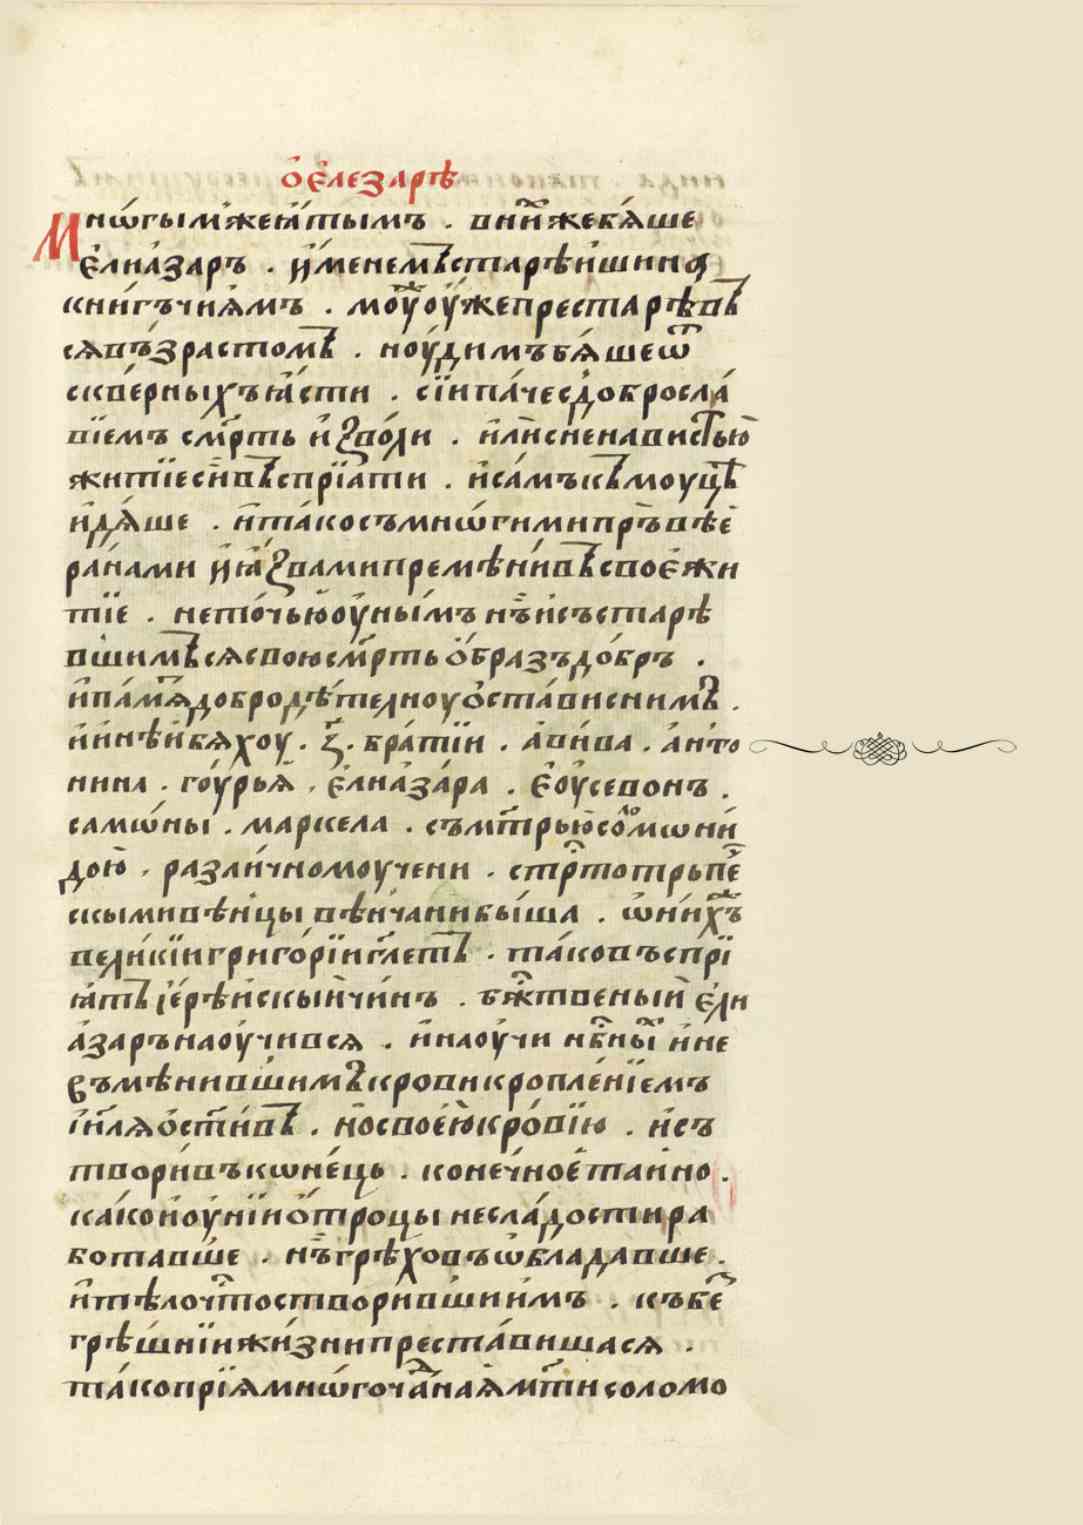 ѻ҆ єлезарѣ
Мнѡ́гым же ꙗ҆тымъ . в ни́х же бѧ́ше
є҆лиа́заръ . и҆́менемъ старѣ́ишина
кни́гъчиѧмъ . моу́ж оу҆́же престарѣ́въ
сѧ въ́зрастомъ . ноу́димъ бѧ́ше ѿ
скве́рныхъ ꙗ҆́сти . сїи па́че с добросла́
вїемъ см҃рть и҆зво́ли . и҆лѝ с ненавистью̀
житїе сѝ въспрїа́ти . и҆ са́мъ къ моуцѣ
и҆дѧ́ше . и҆ та́ко съ мнѡ́гими пръвѣ́е
ра́нами и҆ ꙗ҆́звами премѣни́въ своѐ жи
тїе . не то́чью оу҆́ны́мъ нъ̀ и҆ състарѣ
вшимъсѧ свою см҃рть ѻ҆́бразъ до́бръ .
и҆ па́мѧт добродѣ́телноу ѻ҆ста́ви с ни́мъ .
и҆ и҆нѣ́и бѧ́хоу . з҃ . бра́тїи . а҆ви́ва . а҆нто
нина . гоу́рьѧ . є҆лиаза́ра . є҆оу҆севонъ .
самѡ́ны . маркела . съ м҃трью соломѡни́
дою̀ . разли́чно моучени . стр҃тотрьпе́
скыми вѣ́нцы вѣнча́ни бы́ша . ѡ ни́хже
вели́кїи григо́рїи гл҃еть . та́ко въспрї
ꙗ́ть і҆ерѣ́искыи чи́нъ . бж҃твеныи є҆ли
а́заръ наоу҆чи́всѧ . и҆ наоу҆чи нбн҃ыѧ и҆ не
въмѣни́вшимъ крови кропле́нїемъ
і҆и҃лѧ ѻ҆ст҃и́въ . но̀ свое́ю кро́вїю . и҆ съ
твори́въ кѡне́ць . коне́чное та́ино .
ка́ко и҆ оу҆́нїи ѻ҆́троцы не сла́дости ра
ботавше . нъ̀ грѣхо́въ ѡ҆бладавше .
и҆ тѣ́ло ч҃то створи́вши и́мъ . къ бе
грѣ́шнїи жи́зни преста́вишасѧ .
та́ко прїѧ мнѡгоча́днаѧ м҃ти соломо